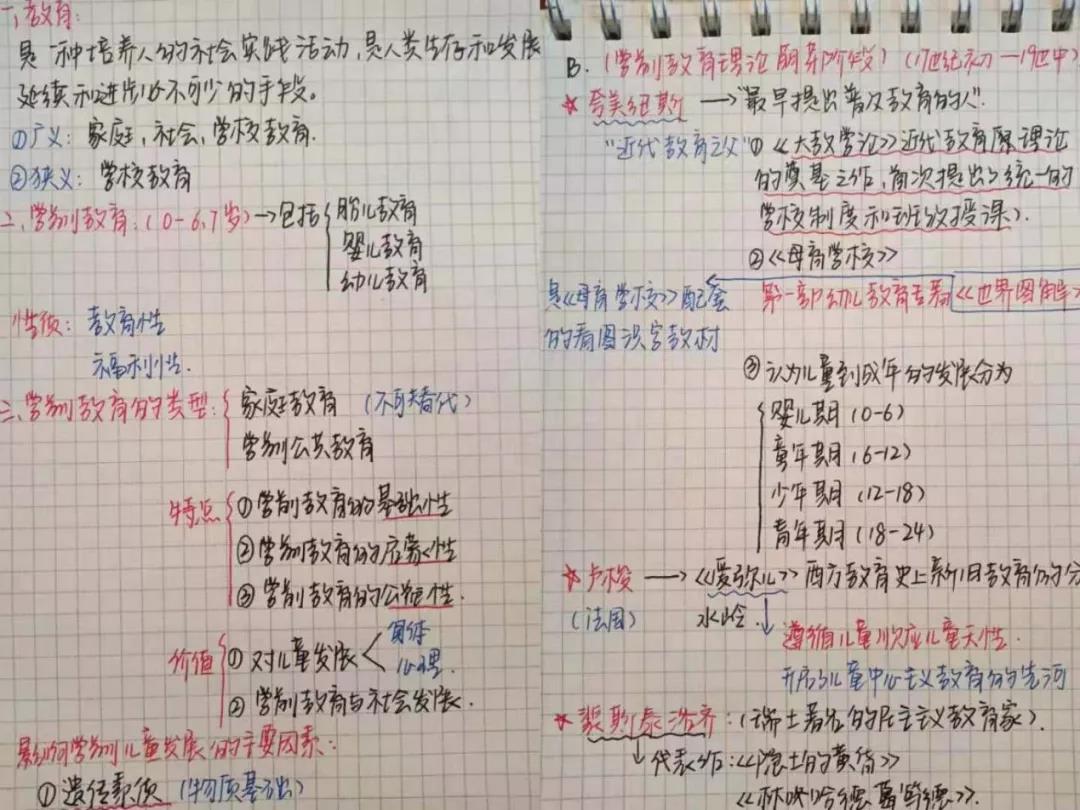 一、教育:
是一种培养人的社会实践活动,是人类生存和发展
延续和进步必不可少的手段。
①广义: 家庭,社会,学校教育.
②狭义: 学校教育
二、学前教育:(0-6,7岁)→包括
胎儿教育
婴儿教育
幼儿教育
性质: 教育性
福利性.
三、学前教育的类型:
家庭教育 (不可替代)
学前公共教育
特点
①学前教育的基础性
②学前教育的启蒙性
③学前教育的公益性.
价值
①对儿童发展<
身体
心理.
②学前教育与社会发展.
影响学前儿童发展的主要因素:
①遗传素质 (物质基础)
B. (学前教育理论萌芽阶段) (17世纪初—19世中)
★夸美纽斯→"最早提出普及教育的人".
"近代教育之父"①《大教学论》近代教育原理论
的奠基之作,首次提出了统一的
学校制度和班级授课).
②《母育学校》
第一部幼儿教育专著《世界图解》
是《母育学校》配套
的看图识字教材
③认为儿童到成年的发展分为
婴儿期(0-6)
童年期(6-12)
少年期(12-18)
青年期(18-24)
★卢梭→《爱弥儿》西方教育史上新旧教育的分
(法国) 水岭.
遵循儿童顺应儿童天性.
开启了儿童中心主义教育的先河
★裴斯泰洛齐:(瑞士著名的民主主义教育家).
代表作:《隐士的黄昏》
《林哈德